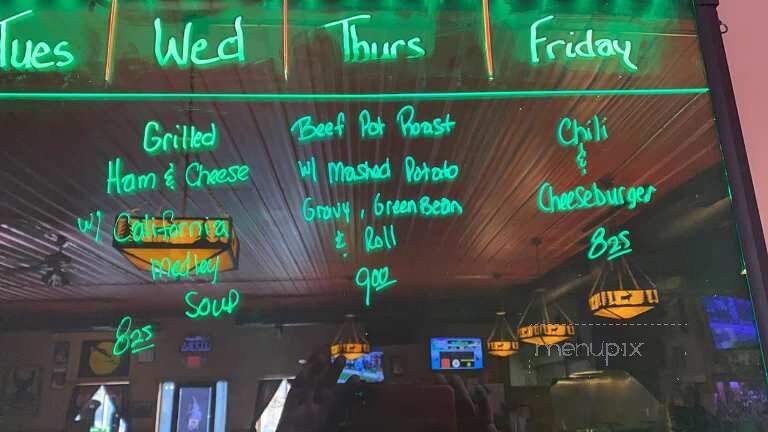 Tues Wed Thurs Friday
Grilled
Ham & Cheese
w/ California
medley
Soup
825
Beef Pot Roast
w/ Mashed Potato
Gravy, Green Bean
& Roll
900
Chili
&
Cheeseburger
825
menupix